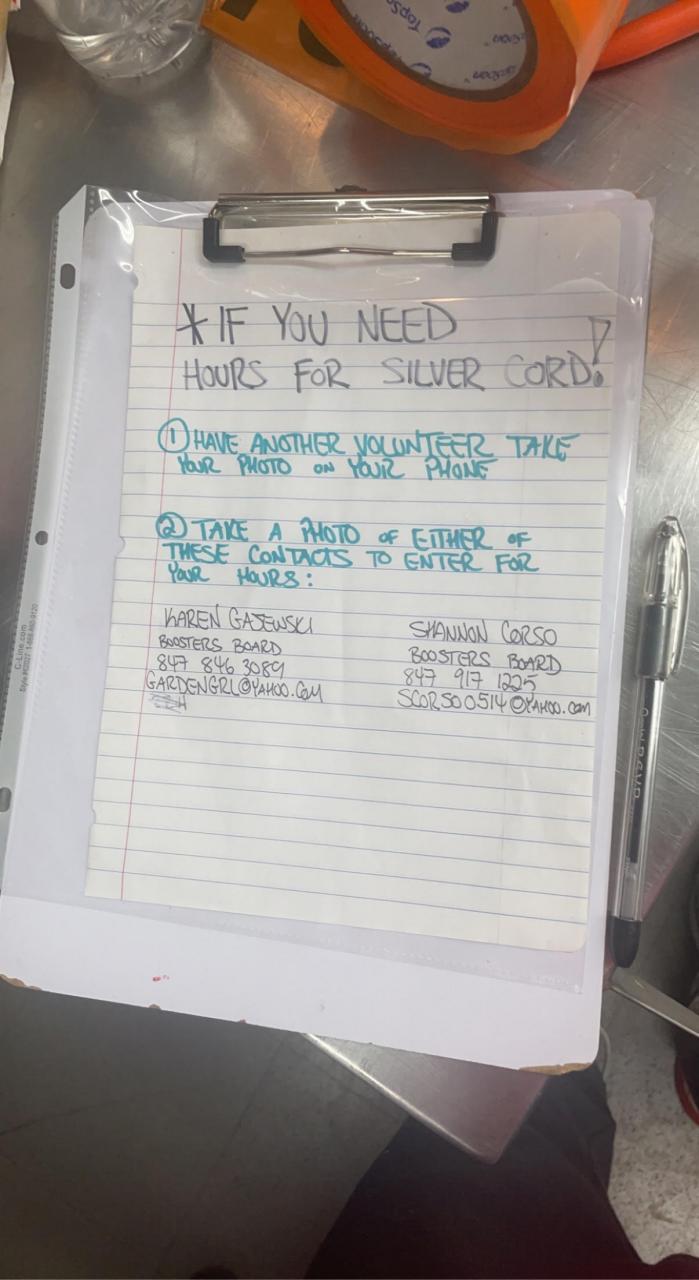 TopSoon
Topsoon
* IF YOU NEED
HOURS FOR SILVER CORD!
① HAVE ANOTHER VOLUNTEER TAKE
YOUR PHOTO ON YOUR PHONE
② TAKE A PHOTO OF EITHER OF
THESE CONTACTS TO ENTER FOR
YOUR HOURS:
KAREN GAJEWSKI
BOOSTERS BOARD
847 846 3089
GARDENGRL@YAHOO.COM
SHANNON CORSO
BOOSTERS BOARD
847 917 1225
SCORSO0514@YAHOO.COM
C-Line.com